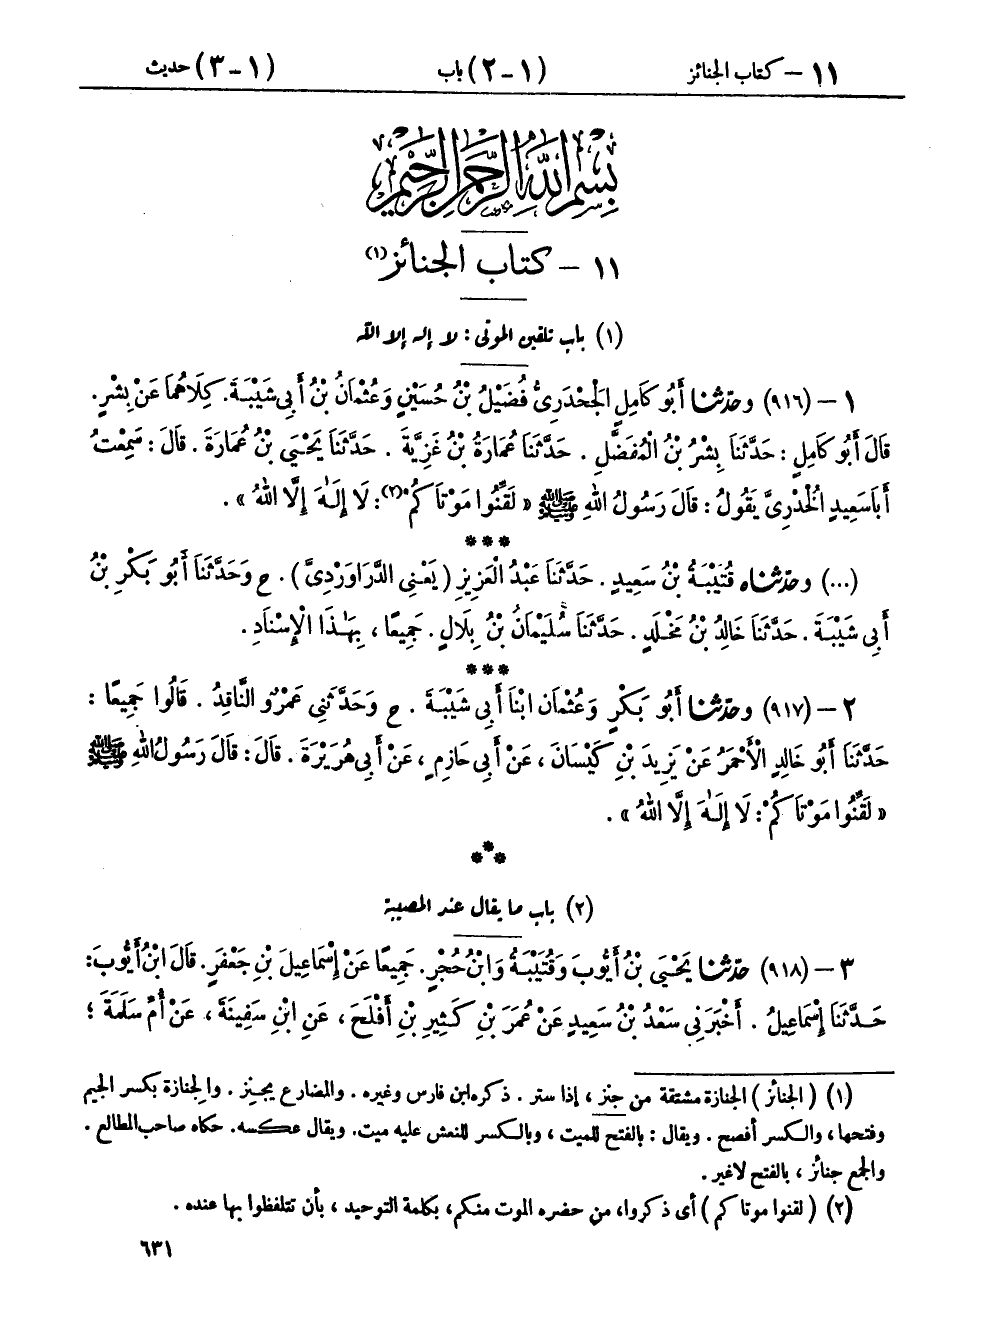 ١١ – كتاب الجنائز (١-٢) باب (١-٣) حديث
بِسْمِ اللَّهِ الرَّحْمَٰنِ الرَّحِيمِ
١١ – كتاب الجنائز(١)
(١) باب تلقين الموتى: لا إله إلا الله
١ – (٩١٦) وحدّثنا أَبُو كَامِلٍ الْجَحْدَرِىُّ فُضَيْلُ بْنُ حُسَيْنٍ وَعُثْمَانُ بْنُ أَبِى شَيْبَةَ. كِلَاهُمَا عَنْ بِشْرٍ.
قَالَ أَبُو كَامِلٍ: حَدَّثَنَا بِشْرُ بْنُ الْمُفَضَّلِ. حَدَّثَنَا عُمَارَةُ بْنُ غَزِيَّةَ. حَدَّثَنَا يَحْيَى بْنُ عُمَارَةَ. قَالَ: سَمِعْتُ
أَبَا سَعِيدٍ الْخُدْرِىَّ يَقُولُ: قَالَ رَسُولُ اللهِ ﷺ « لَقِّنُوا مَوْتَاكُمْ(٢): لَا إِلَـٰهَ إِلَّا اللهُ ».
***
(...) وحدّثناه قُتَيْبَةُ بْنُ سَعِيدٍ. حَدَّثَنَا عَبْدُ الْعَزِيزِ (يَعْنِى الدَّرَاوَرْدِىَّ). ح وَحَدَّثَنَا أَبُو بَكْرِ بْنُ
أَبِى شَيْبَةَ. حَدَّثَنَا خَالِدُ بْنُ مَخْلَدٍ. حَدَّثَنَا سُلَيْمَانُ بْنُ بِلَالٍ. جَمِيعًا، بِهَـٰذَا الْإِسْنَادِ.
***
٢ – (٩١٧) وحدّثنا أَبُو بَكْرٍ وَعُثْمَان ابْنَا أَبِى شَيْبَةَ. ح وَحَدَّثَنِى عَمْرٌو النَّاقِدُ. قَالُوا جَمِيعًا:
حَدَّثَنَا أَبُو خَالِدٍ الْأَحْمَرُ عَنْ يَزِيدَ بْنِ كَيْسَانَ، عَنْ أَبِى حَازِمٍ، عَنْ أَبِى هُرَيْرَةَ. قَالَ: قَالَ رَسُولُ اللهِ ﷺ
« لَقِّنُوا مَوْتَاكُمْ: لَا إِلَـٰهَ إِلَّا اللهُ ».
***
(٢) باب ما يقال عند المصيبة
٣ – (٩١٨) حدّثنا يَحْيَى بْنُ أَيُّوبَ وَقُتَيْبَةُ وَابْنُ حُجْرٍ. جَمِيعًا عَنْ إِسْمَاعِيلَ بْنِ جَعْفَرٍ. قَالَ ابْنُ أَيُّوبَ:
حَدَّثَنَا إِسْمَاعِيلُ. أَخْبَرَنِى سَعْدُ بْنُ سَعِيدٍ عَنْ عُمَرَ بْنِ كَثِيرِ بْنِ أَفْلَحَ، عَنِ ابْنِ سَفِينَةَ، عَنْ أُمِّ سَلَمَةَ؛
(١) (الجنائز) الجنازة مشتقة من جنز، إذا ستر. ذكره ابن فارس وغيره. والمضارع يجنِز. والجنازة بكسر الجيم
وفتحها، والكسر أفصح. ويقال: بالفتح للميت، وبالكسر للنعش عليه ميت. ويقال عكسه. حكاه صاحب المطالع.
والجمع جنائز، بالفتح لا غير.
(٢) (لقنوا موتاكم) أى ذكروا، من حضره الموت منكم، بكلمة التوحيد، بأن تتلفظوا بها عنده.
٦٣١